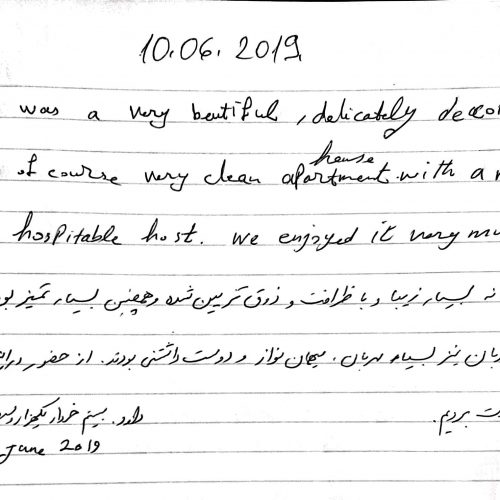 10.06.2019
was a very beutiful, delicately
house
of course very clean apartment with a
hospitable host. we enjoyed it very
بسیار زیبا و با ظرافت و ذوق تزیین شده و همچنین بسیار تمیز
نیز بسیار مهربان، میهمان نواز و دوست داشتنی بودند. از حضور در
بردیم. داود. بیستم خرداد یکهزار و
June 2019